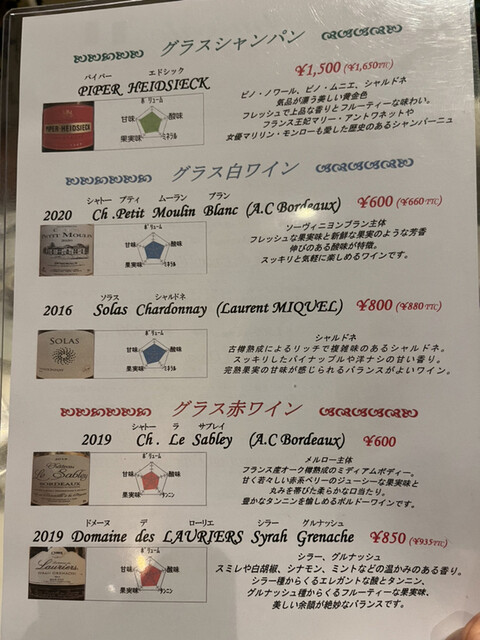 グラスシャンパン
パイパー エドシック
PIPER HEIDSIECK
¥1,500 (¥1,650TTC)
ピノ・ノワール、ピノ・ムニエ、シャルドネ
気品が漂う美しい黄金色
フレッシュで上品な香りとフルーティーな味わい。
フランス王妃マリー・アントワネットや
女優マリリン・モンローも愛した歴史のあるシャンパーニュ
PIPER-HEIDSIECK
ボリューム
甘味 酸味
果実味 ミネラル
グラス白ワイン
シャトー プティ ムーラン ブラン
2020 Ch.Petit Moulin Blanc (A.C Bordeaux) ¥600 (¥660TTC)
ソーヴィニヨンブラン主体
フレッシュな果実味と新鮮な果実のような芳香
伸びのある酸味が特徴。
スッキリと気軽に楽しめるワインです。
ボリューム
甘味 酸味
果実味 ミネラル
ソラス シャルドネ
2016 Solas Chardonnay (Laurent MIQUEL) ¥800 (¥880TTC)
シャルドネ
古樽熟成によるリッチで複雑味のあるシャルドネ。
スッキリしたパイナップルや洋ナシの甘い香り。
完熟果実の甘味が感じられるバランスがよいワイン。
SOLAS
ボリューム
甘味 酸味
果実味 ミネラル
グラス赤ワイン
シャトー ラ サブレイ
2019 Ch. Le Sabley (A.C Bordeaux) ¥600
メルロー主体
フランス産オーク樽熟成のミディアムボディー。
甘く若々しい赤系ベリーのジューシーな果実味と
丸みを帯びた柔らかな口当たり。
豊かなタンニンを愉しめるボルドーワインです。
Château
Le Sabley
BORDEAUX
ボリューム
甘味 酸味
果実味 タンニン
ドメーヌ デ ローリエ シラー グルナッシュ
2019 Domaine des LAURIERS Syrah Grenache ¥850 (¥935TTC)
シラー、グルナッシュ
スミレや白胡椒、シナモン、ミントなどの温かみのある香り。
シラー種からくるエレガントな酸とタンニン、
グルナッシュ種からくるフルーティーな果実味、
美しい余韻が絶妙なバランスです。
Lauriers
ボリューム
甘味 酸味
果実味 タンニン